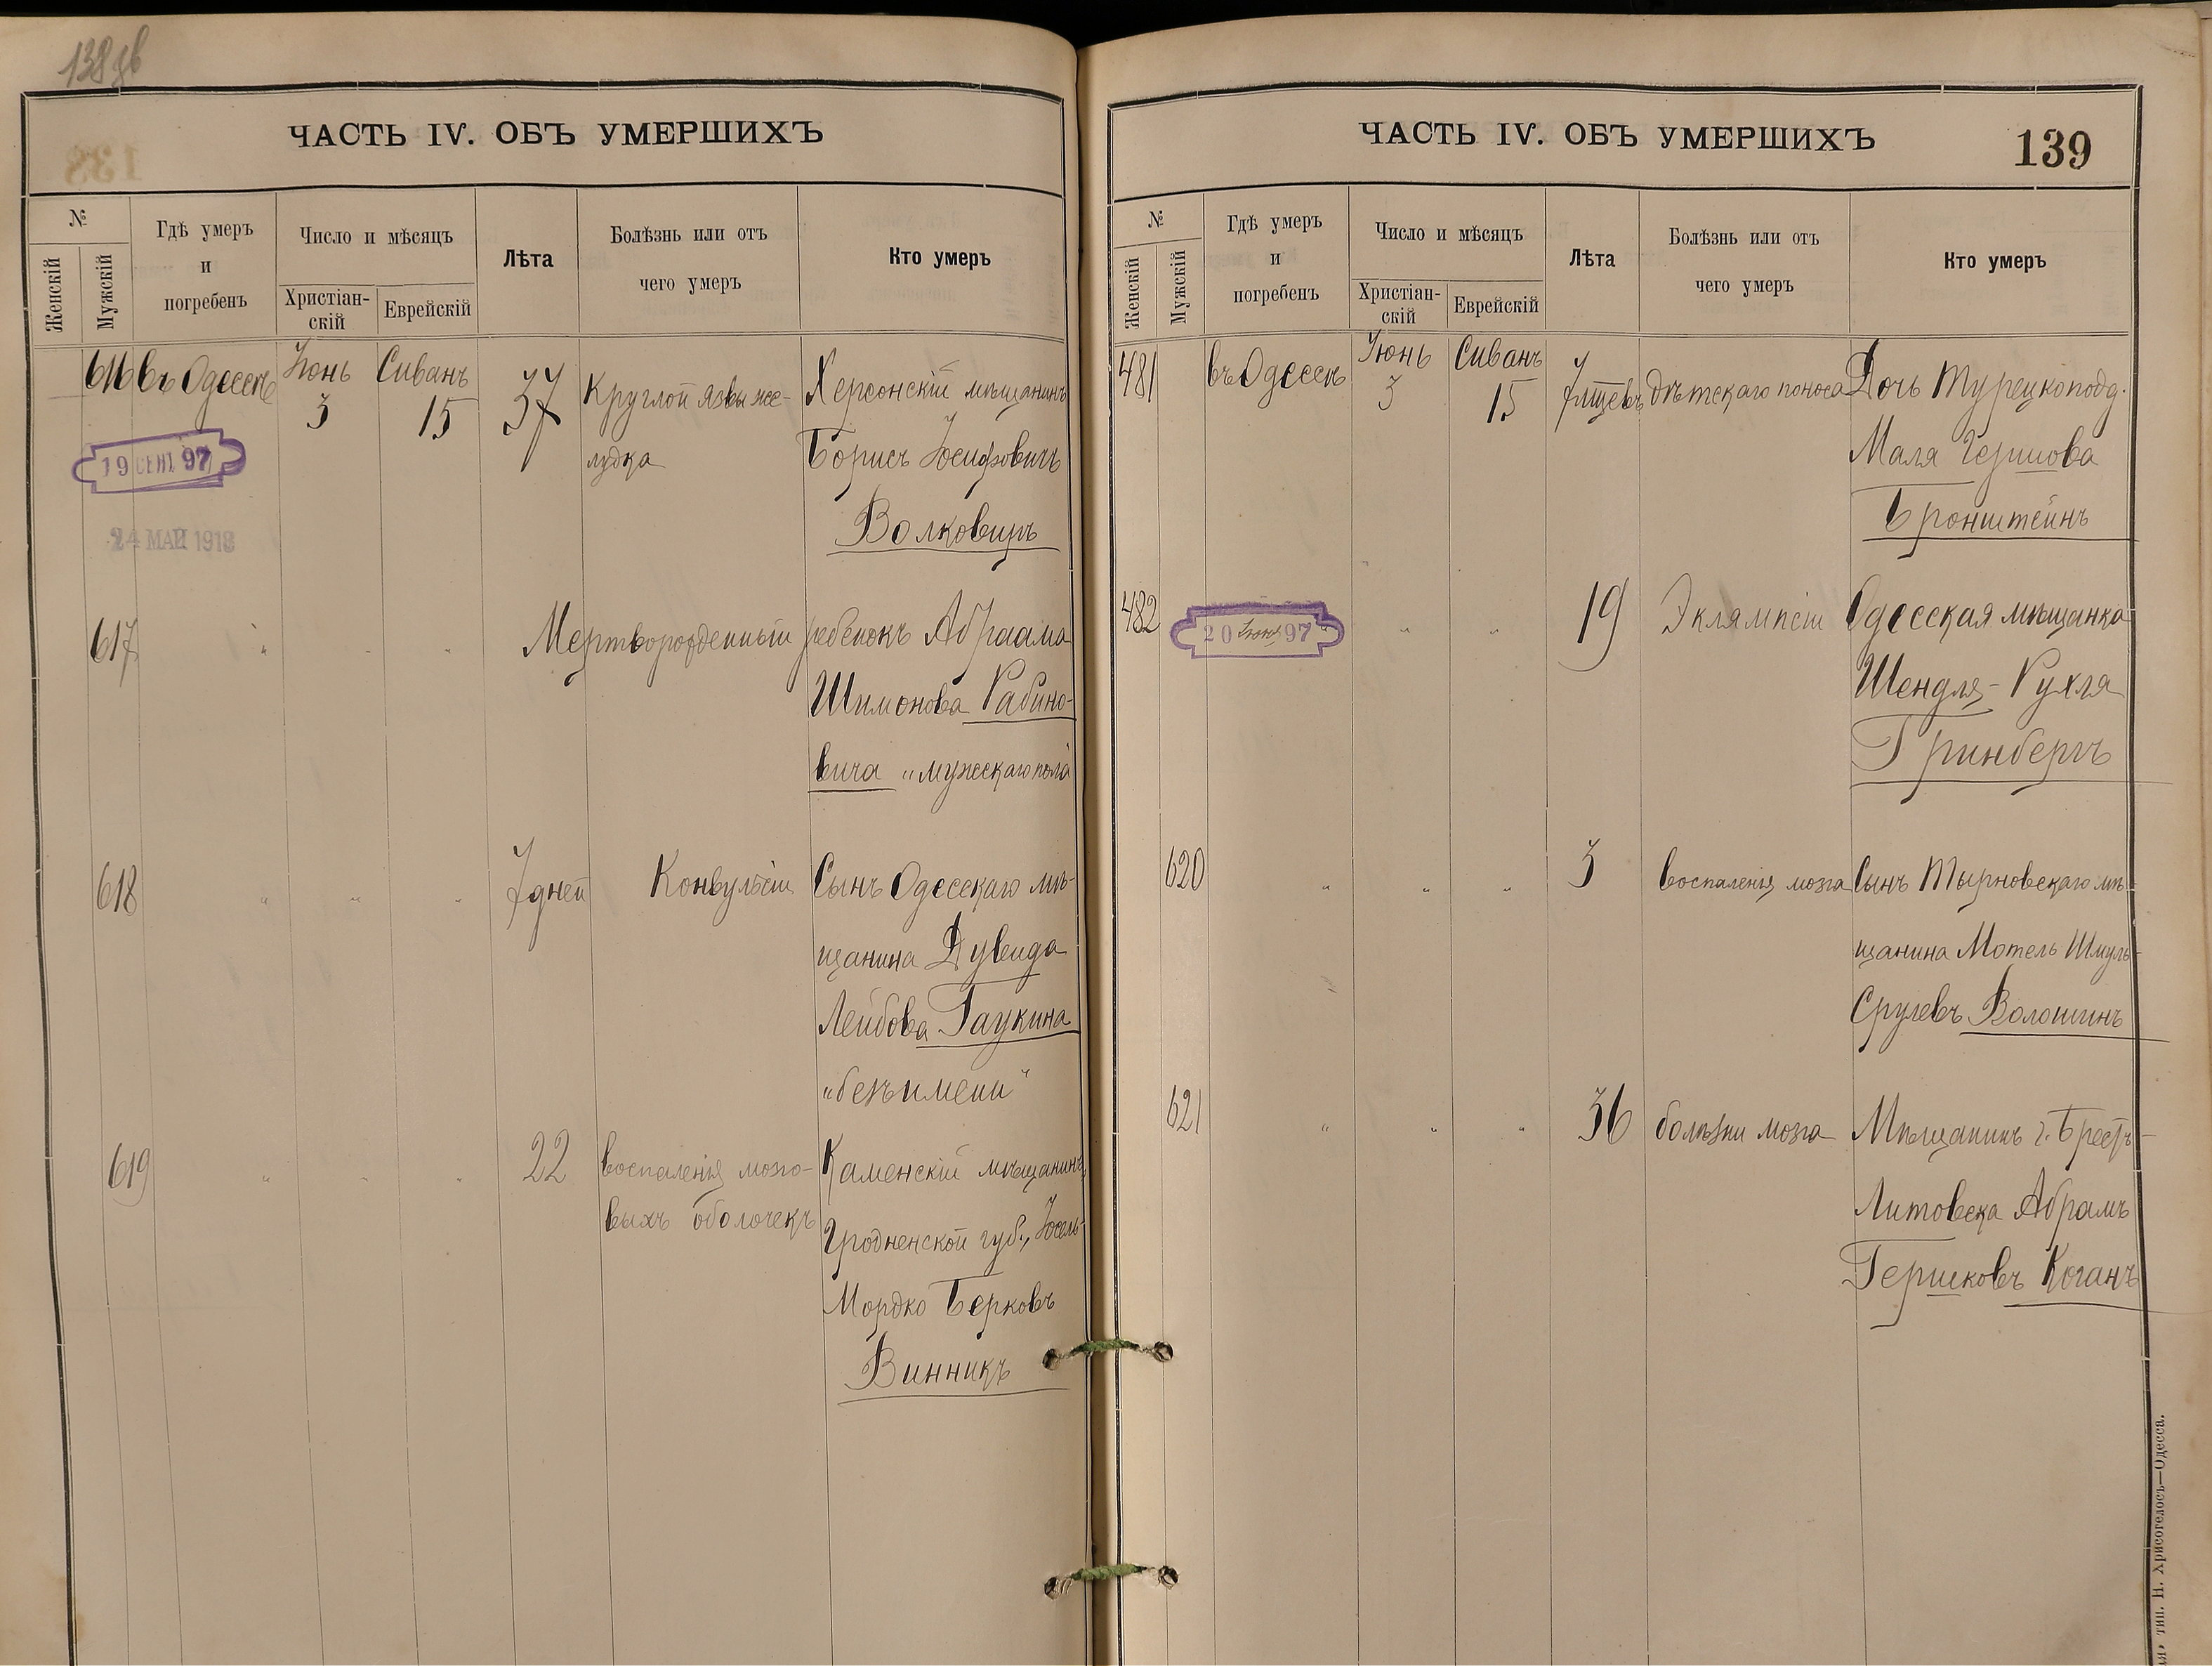 138 об
ЧАСТЬ IV. ОБЪ УМЕРШИХЪ
№
Женскій
Мужскій
Гдѣ умеръ
и
погребенъ
Число и мѣсяцъ
Христіан-
скій
Еврейскій
Лѣта
Болѣзнь или отъ
чего умеръ
Кто умеръ
616 въ Одессѣ Іюнь 3 Сиванъ 15 37 Круглой язвы же- Херсонскій мѣщанинъ
лудка Борисъ Іосифовичъ
19 СЕН. 97
Волковичъ
24 МАЙ 1918
617 " " " Мертворожденный ребенокъ Абраама
Шимонова Рабино-
вича „мужескаго пола"
618 " " " 7 дней Конвульсіи Сынъ Одесскаго мѣ-
щанина Дувида
Лейбова Гаукина
„безъ имени"
619 " " " 22 воспаленія мозго- Каменскій мѣщанинъ,
выхъ оболочекъ Гродненской губ., Іосель-
Мордко Берковъ
Винникъ
ЧАСТЬ IV. ОБЪ УМЕРШИХЪ
139
№
Женскій
Мужскій
Гдѣ умеръ
и
погребенъ
Число и мѣсяцъ
Христіан-
скій
Еврейскій
Лѣта
Болѣзнь или отъ
чего умеръ
Кто умеръ
481 въ Одессѣ Іюнь 3 Сиванъ 15 7 мцевъ дѣтскаго поноса Дочь Турецкоподд.
Маля Гершова
Бронштейнъ
482 " " " 19 Эклямпсіи Одесская мѣщанка
20 Іюн 97
Шендля-Рухля
Гринбергъ
620 " " " 3 воспаленія мозга Сынъ Тырновскаго мѣ-
щанина Мотель Шмуль-
Срулевъ Волошинъ
621 " " " 36 болѣзни мозга Мѣщанинъ г. Брестъ-
Литовска Абрамъ
Гершковъ Коганъ
тип. Н. Хрисогелосъ—Одесса.